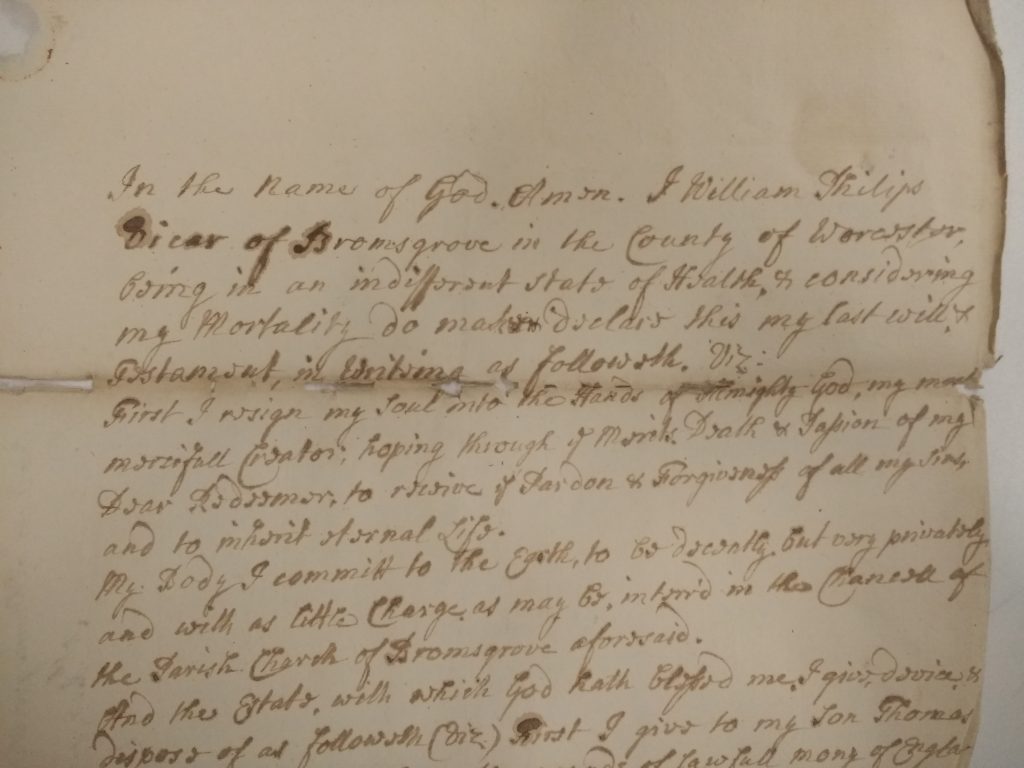 In the Name of God. Amen. I William Philips
Vicar of Bromsgrove in the County of Worcester,
being in an indifferent state of Health, & considering
my Mortality do make & declare this my last will &
Testament, in Writing as followeth. Viz:
First I resign my Soul into the Hands of Almighty God, my most
mercifull Creator; hoping through ye Merit Death & Passion of my
Dear Redeemer, to receive ye Pardon & Forgiveness of all my sins,
and to inherit eternal Life.
My Body I committ to the Earth, to be decently but very privately
and with as little Charge as may be, interr'd in the Chancell of
the Parish Church of Bromsgrove aforesaid.
And the Estate, with which God hath blessed me, I give, devise &
dispose of as followeth (viz.) First I give to my Son Thomas
of lawfull mony of Engla